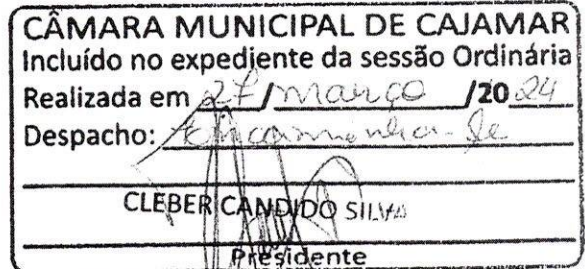 CÂMARA MUNICIPAL DE CAJAMAR
Incluído no expediente da sessão Ordinária
Realizada em 27/março/2024
Despacho: Encaminha-se
CLEBER CANDIDO SILVA
Presidente